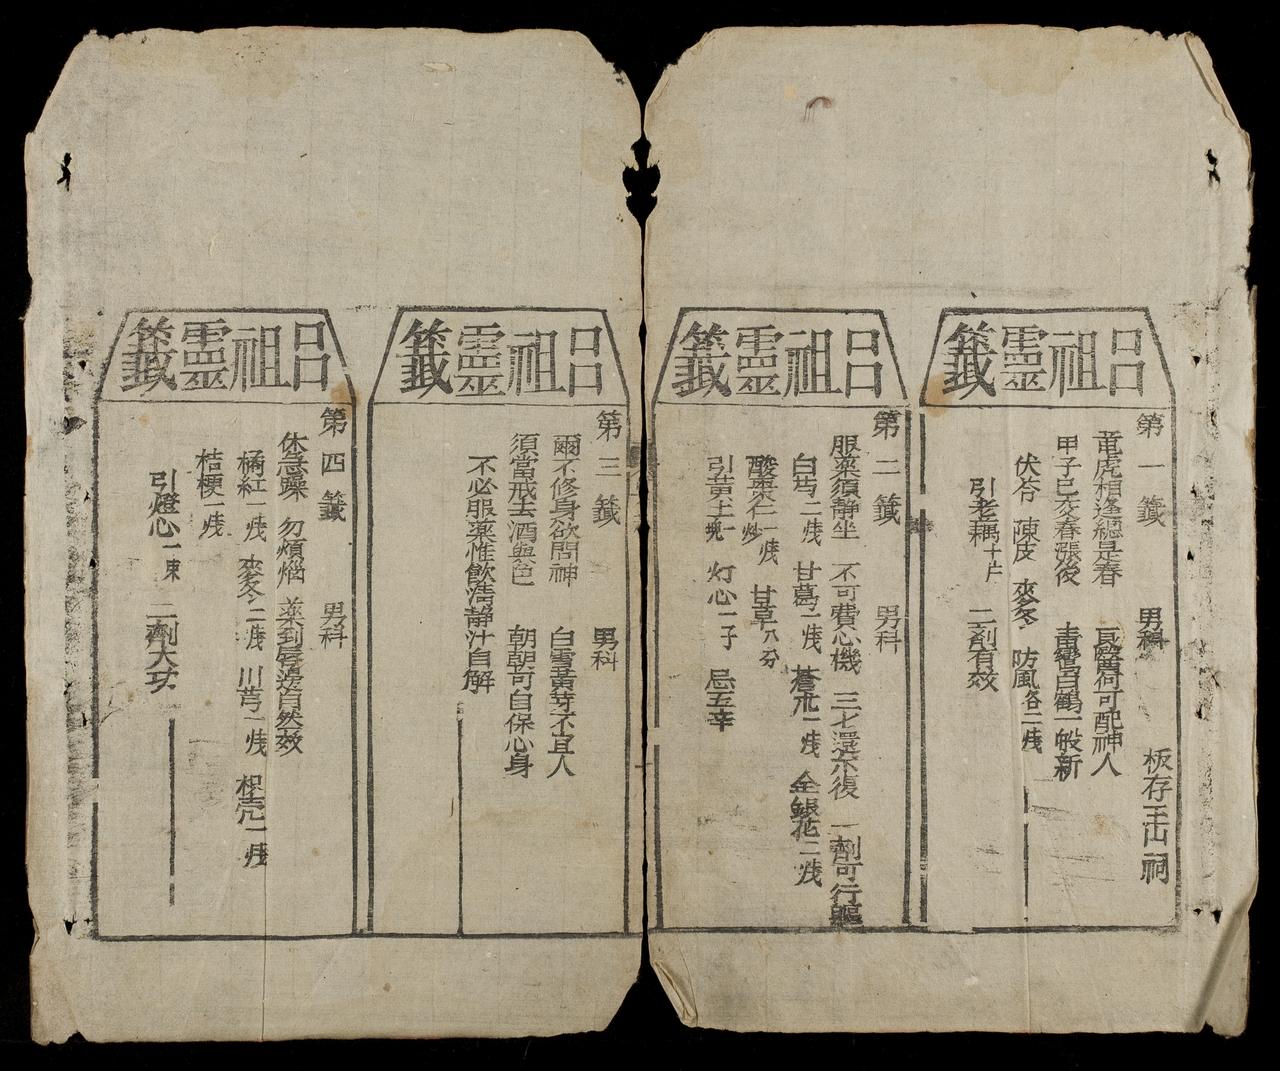 呂祖靈籤
第一籤 男科 板存玉山祠
竜虎相逢總是春 良醫何可配神人
甲子已交春漲後 青鸞白鶴一般新
伏苓 陳皮 麥冬 防風各二戋
引老藕十片 二剂有效
呂祖靈籤
第二籤 男科
服薬須静坐 不可費心機 三七還未復 一劑可行軀
白芍二戋 甘葛一戋 蒼朮一戋 金銀花二戋
酸棗仁一戋炒 甘草八分
引黃土一塊 灯心一子 忌五辛
呂祖靈籤
第三籤 男科
爾不修身欲問神 白雪黃芽不宜人
須當戒去酒與色 朝朝可自保心身
不必服薬惟飲清静汁自解
呂祖靈籤
第四籤 男科
休急躁 勿煩惱 薬到唇邊自然效
橘紅一戋 麥冬二戋 川芎一戋 枳壳一戋
桔梗一戋
引燈心一束 二劑大功